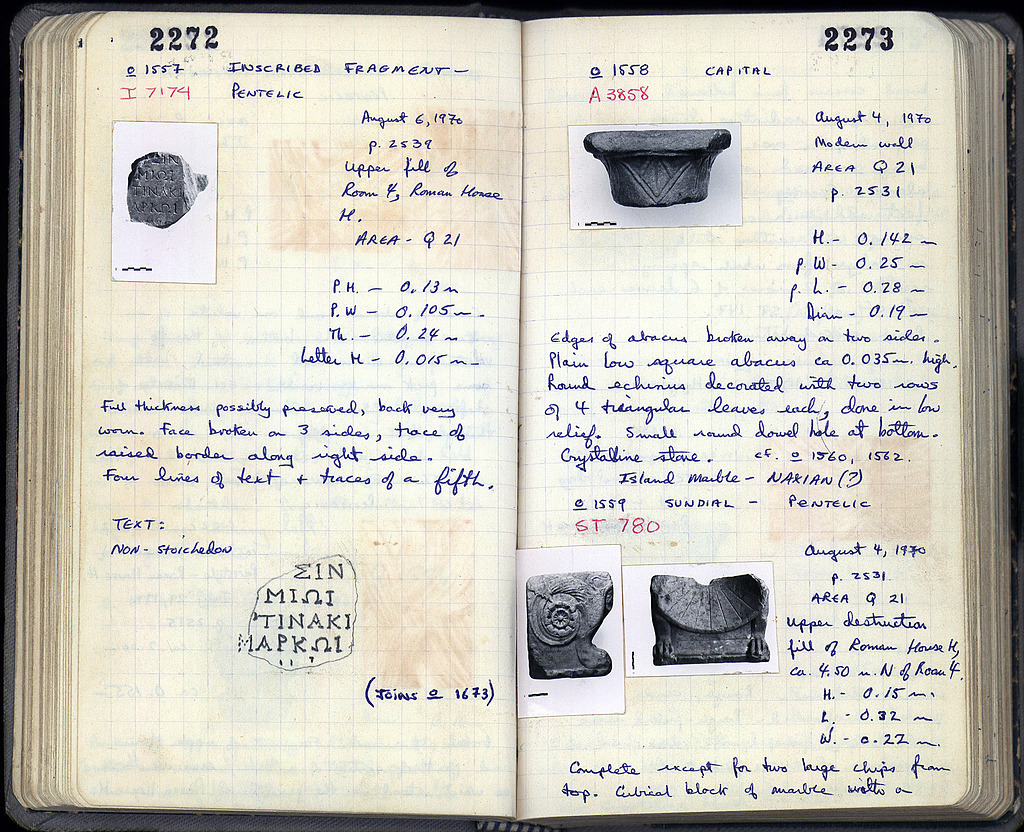 2272
o 1557 INSCRIBED FRAGMENT —
I 7174 PENTELIC
August 6, 1970
p. 2539
Upper fill of
Room 4, Roman House
H.
AREA - Q 21
P.H. — 0.13 m
P.W — 0.105 m.
Th. — 0.24 m
Letter H — 0.015 m
Full thickness possibly preserved, back very
worn. Face broken on 3 sides, trace of
raised border along right side.
Four lines of text + traces of a fifth.
TEXT:
NON-Stoichedon
ΣΙΝ
ΜΙΩΙ
ΤΙΝΑΚΙ
ΜΑΡΚΩΙ
(Joins o 1673)
ΣΙΝ
ΜΙΩΙ
ΤΙΝΑΚΙ
ΑΡΚΩΙ
2273
o 1558 CAPITAL
A 3858
August 4, 1970
Modern wall
AREA Q 21
p. 2531
H. - 0.142 m
p. W - 0.25 m
p. L. - 0.28 m
Diam - 0.19 m
Edges of abacus broken away on two sides.
Plain low square abacus ca 0.035 m. high.
Round echinus decorated with two rows
of 4 triangular leaves each, done in low
relief. Small round dowel hole at bottom.
Crystalline stone. cf. o 1560, 1562.
Island marble - NAXIAN (?)
o 1559 SUNDIAL - PENTELIC
ST 780
August 4, 1970
p. 2531
AREA Q 21
Upper destruction
fill of Roman House H,
ca. 4.50 m. N of Room 4.
H. - 0.15 m.
L. - 0.32 m
W. - 0.22 m.
Complete except for two large chips from
top. Cubical block of marble with a